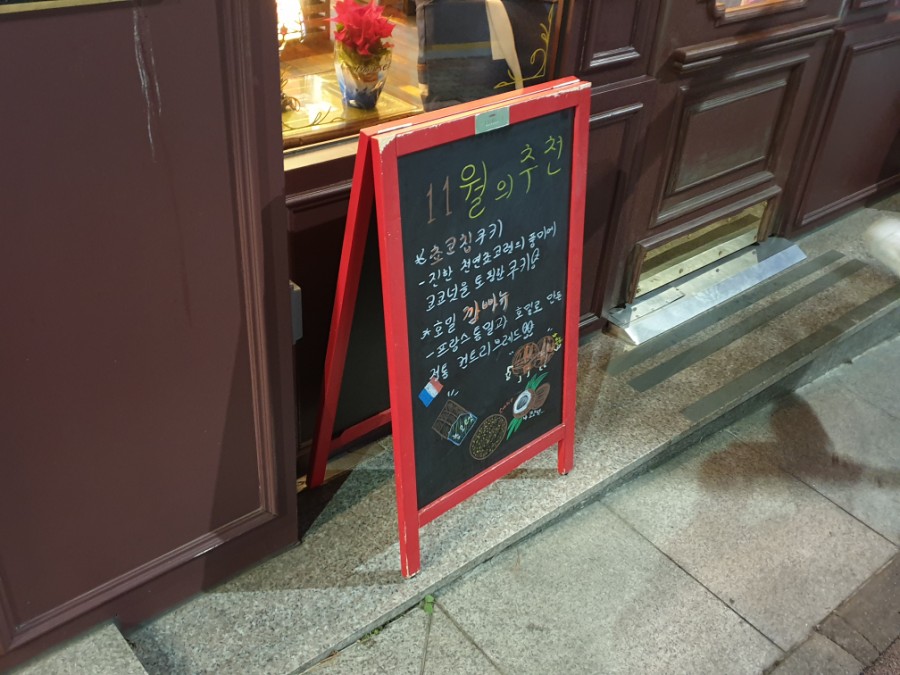 11월의 추천
초코칩쿠키
- 진한 천연초코렛의 풍미에
코코넛을 토핑한 쿠키
*호밀 깜빠뉴
- 프랑스통밀과 호밀로 만든
정통 컨트리브레드